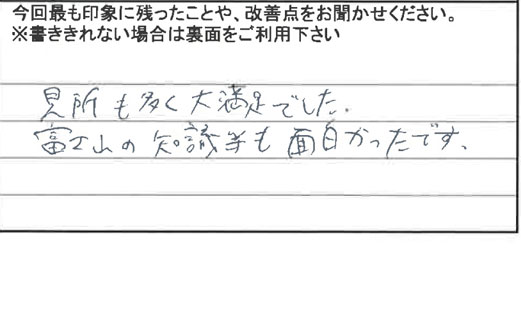 今回最も印象に残ったことや、改善点をお聞かせください。
※書ききれない場合は裏面をご利用下さい
見所も多く大満足でした。
富士山の知識等も面白かったです。